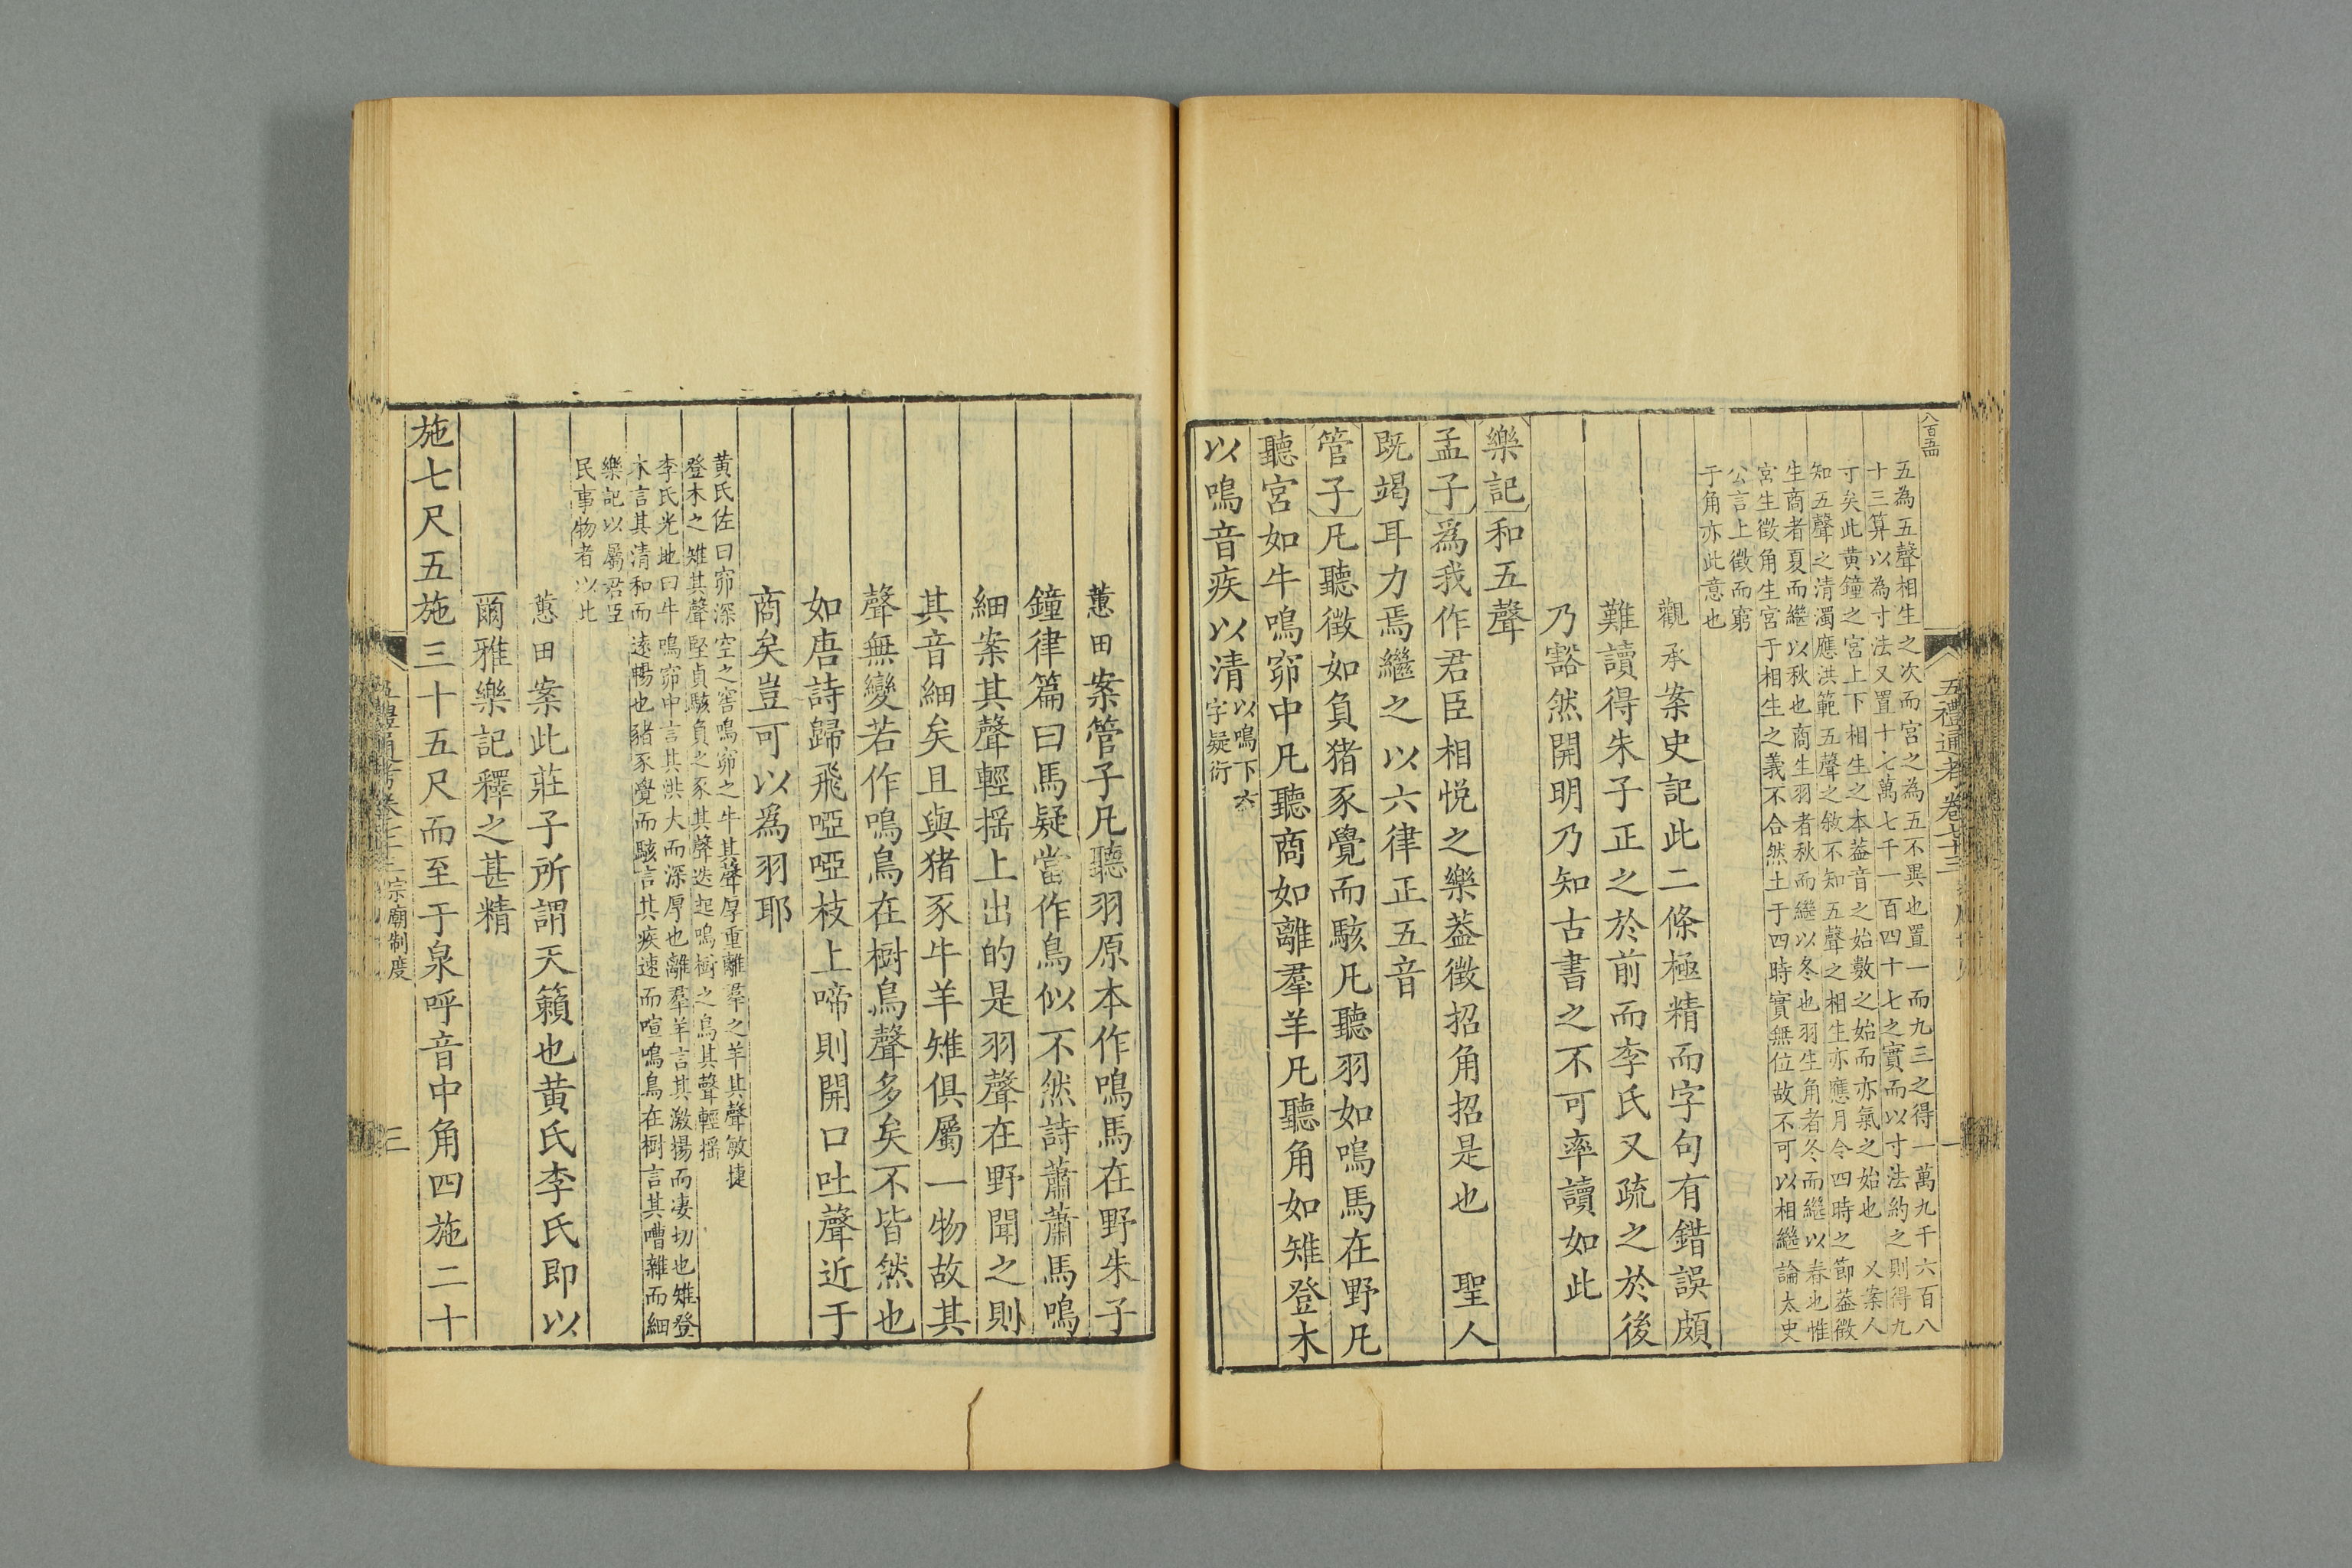 八百五
五為五聲相生之次而宮之為五不異也置一而九三之得一萬九千六百八
十三算以為寸法又置十七萬七千一百四十七之實而以寸法約之則得九
寸矣此黃鐘之宮上下相生之本葢音之始數之始而亦氣之始也　又案人
知五聲之清濁應洪範五聲之敘不知五聲之相生亦應月令四時之節葢徵
生商者夏而繼以秋也商生羽者秋而繼以冬也羽生角者冬而繼以春也惟
宮生徵角生宮于相生之義不合然土于四時實無位故不可以相繼論太史
公言上徵而窮
于角亦此意也
觀承案史記此二條極精而字句有錯誤頗
難讀得朱子正之於前而李氏又疏之於後
乃豁然開明乃知古書之不可率讀如此
樂記和五聲
孟子爲我作君臣相悅之樂葢徵招角招是也　聖人
既竭耳力焉繼之以六律正五音
管子凡聽徵如負猪豕覺而駭凡聽羽如鳴馬在野凡
聽宮如牛鳴窌中凡聽商如離羣羊凡聽角如雉登木
以鳴音疾以清以鳴下六
字疑衍
五禮通考卷七十三
一
蕙田案管子凡聽羽原本作鳴馬在野朱子
鐘律篇曰馬疑當作鳥似不然詩蕭蕭馬鳴
細案其聲輕揺上出的是羽聲在野聞之則
其音細矣且與猪豕牛羊雉俱屬一物故其
聲無變若作鳴鳥在樹鳥聲多矣不皆然也
如唐詩歸飛啞啞枝上啼則開口吐聲近于
商矣豈可以為羽耶
黃氏佐曰窌深空之窖鳴窌之牛其聲厚重離羣之羊其聲敏捷
登木之雉其聲堅貞駭負之豕其聲迭起鳴樹之鳥其聲輕揺
李氏光地曰牛鳴窌中言其洪大而深厚也離羣羊言其激揚而凄切也雉登
木言其清和而遠暢也豬豕覺而駭言其疾速而喧鳴鳥在樹言其嘈雜而細
樂記以屬君臣
民事物者以此
蕙田案此莊子所謂天籟也黃氏李氏即以
爾雅樂記釋之甚精
施七尺五施三十五尺而至于泉呼音中角四施二十
宗廟制度
三